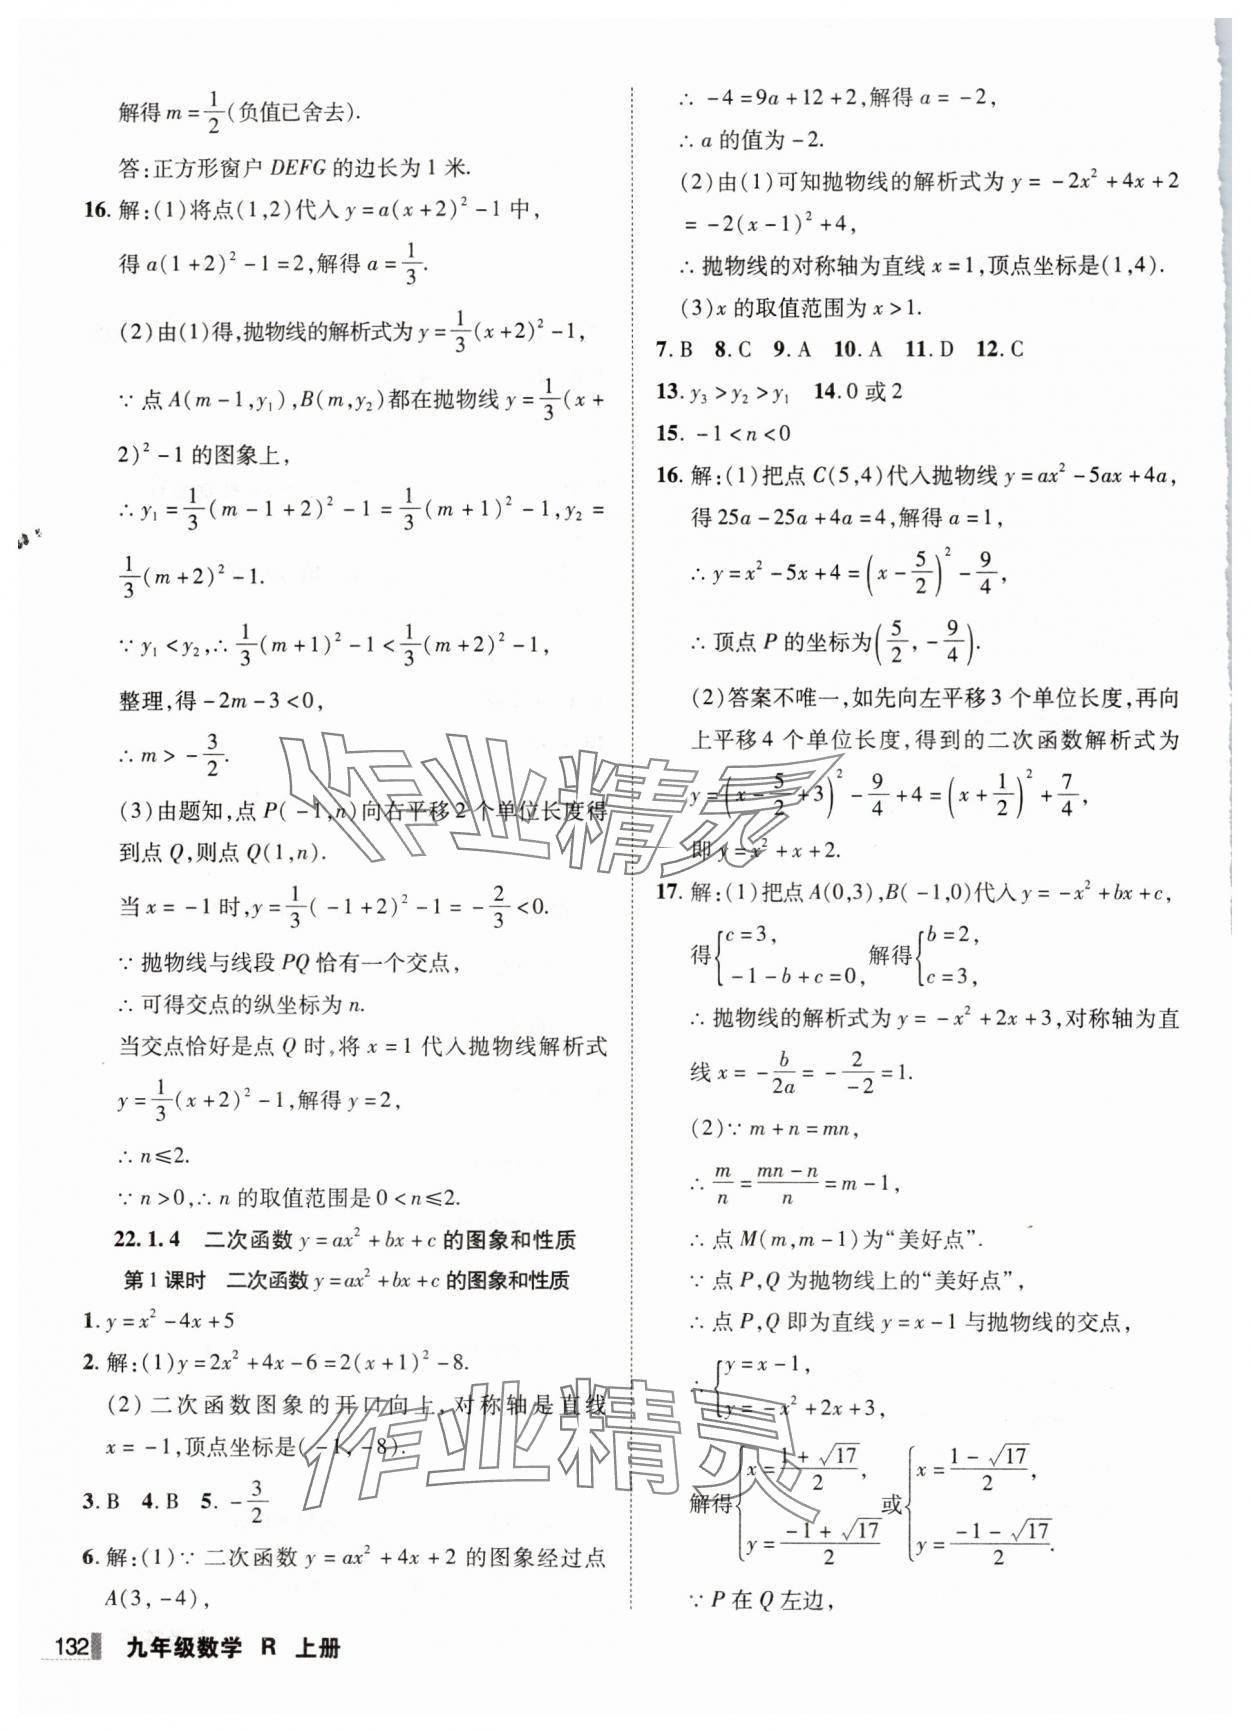 解得 m=1/2(负值已舍去).
答:正方形窗户 DEFG 的边长为 1 米.
16. 解:(1)将点(1,2)代入 y=a(x+2)²-1 中,
得 a(1+2)²-1=2,解得 a=1/3.
(2)由(1)得,抛物线的解析式为 y=1/3(x+2)²-1,
∵点 A(m-1,y₁),B(m,y₂)都在抛物线 y=1/3(x+
2)²-1 的图象上,
∴y₁=1/3(m-1+2)²-1=1/3(m+1)²-1,y₂=
1/3(m+2)²-1.
∵y₁<y₂,∴1/3(m+1)²-1<1/3(m+2)²-1,
整理,得-2m-3<0,
∴m>-3/2.
(3)由题知,点 P(-1,n)向右平移 2 个单位长度得
到点 Q,则点 Q(1,n).
当 x=-1 时,y=1/3(-1+2)²-1=-2/3<0.
∵抛物线与线段 PQ 恰有一个交点,
∴可得交点的纵坐标为 n.
当交点恰好是点 Q 时,将 x=1 代入抛物线解析式
y=1/3(x+2)²-1,解得 y=2,
∴n≤2.
∵n>0,∴n 的取值范围是 0<n≤2.
22.1.4 二次函数 y=ax²+bx+c 的图象和性质
第 1 课时 二次函数 y=ax²+bx+c 的图象和性质
1. y=x²-4x+5
2. 解:(1)y=2x²+4x-6=2(x+1)²-8.
(2)二次函数图象的开口向上,对称轴是直线
x=-1,顶点坐标是(-1,-8).
3. B 4. B 5. -3/2
6. 解:(1)∵二次函数 y=ax²+4x+2 的图象经过点
A(3,-4),
∴-4=9a+12+2,解得 a=-2,
∴a 的值为-2.
(2)由(1)可知抛物线的解析式为 y=-2x²+4x+2
=-2(x-1)²+4,
∴抛物线的对称轴为直线 x=1,顶点坐标是(1,4).
(3)x 的取值范围为 x>1.
7. B 8. C 9. A 10. A 11. D 12. C
13. y₃>y₂>y₁ 14. 0 或 2
15. -1<n<0
16. 解:(1)把点 C(5,4)代入抛物线 y=ax²-5ax+4a,
得 25a-25a+4a=4,解得 a=1,
∴y=x²-5x+4=(x-5/2)²-9/4,
∴顶点 P 的坐标为(5/2,-9/4).
(2)答案不唯一,如先向左平移 3 个单位长度,再向
上平移 4 个单位长度,得到的二次函数解析式为
y=(x-5/2+3)²-9/4+4=(x+1/2)²+7/4,
即 y=x²+x+2.
17. 解:(1)把点 A(0,3),B(-1,0)代入 y=-x²+bx+c,
得{c=3, -1-b+c=0, 解得{b=2, c=3,
∴抛物线的解析式为 y=-x²+2x+3,对称轴为直
线 x=-b/2a=-2/-2=1.
(2)∵m+n=mn,
∴m/n=mn-n/n=m-1,
∴点 M(m,m-1)为“美好点”.
∵点 P,Q 为抛物线上的“美好点”,
∴点 P,Q 即为直线 y=x-1 与抛物线的交点,
∴{y=x-1, y=-x²+2x+3,
解得{x=1+√17/2, y=-1+√17/2 或{x=1-√17/2, y=-1-√17/2.
∵P 在 Q 左边,
132 九年级数学 R 上册
作业精灵
作业精灵